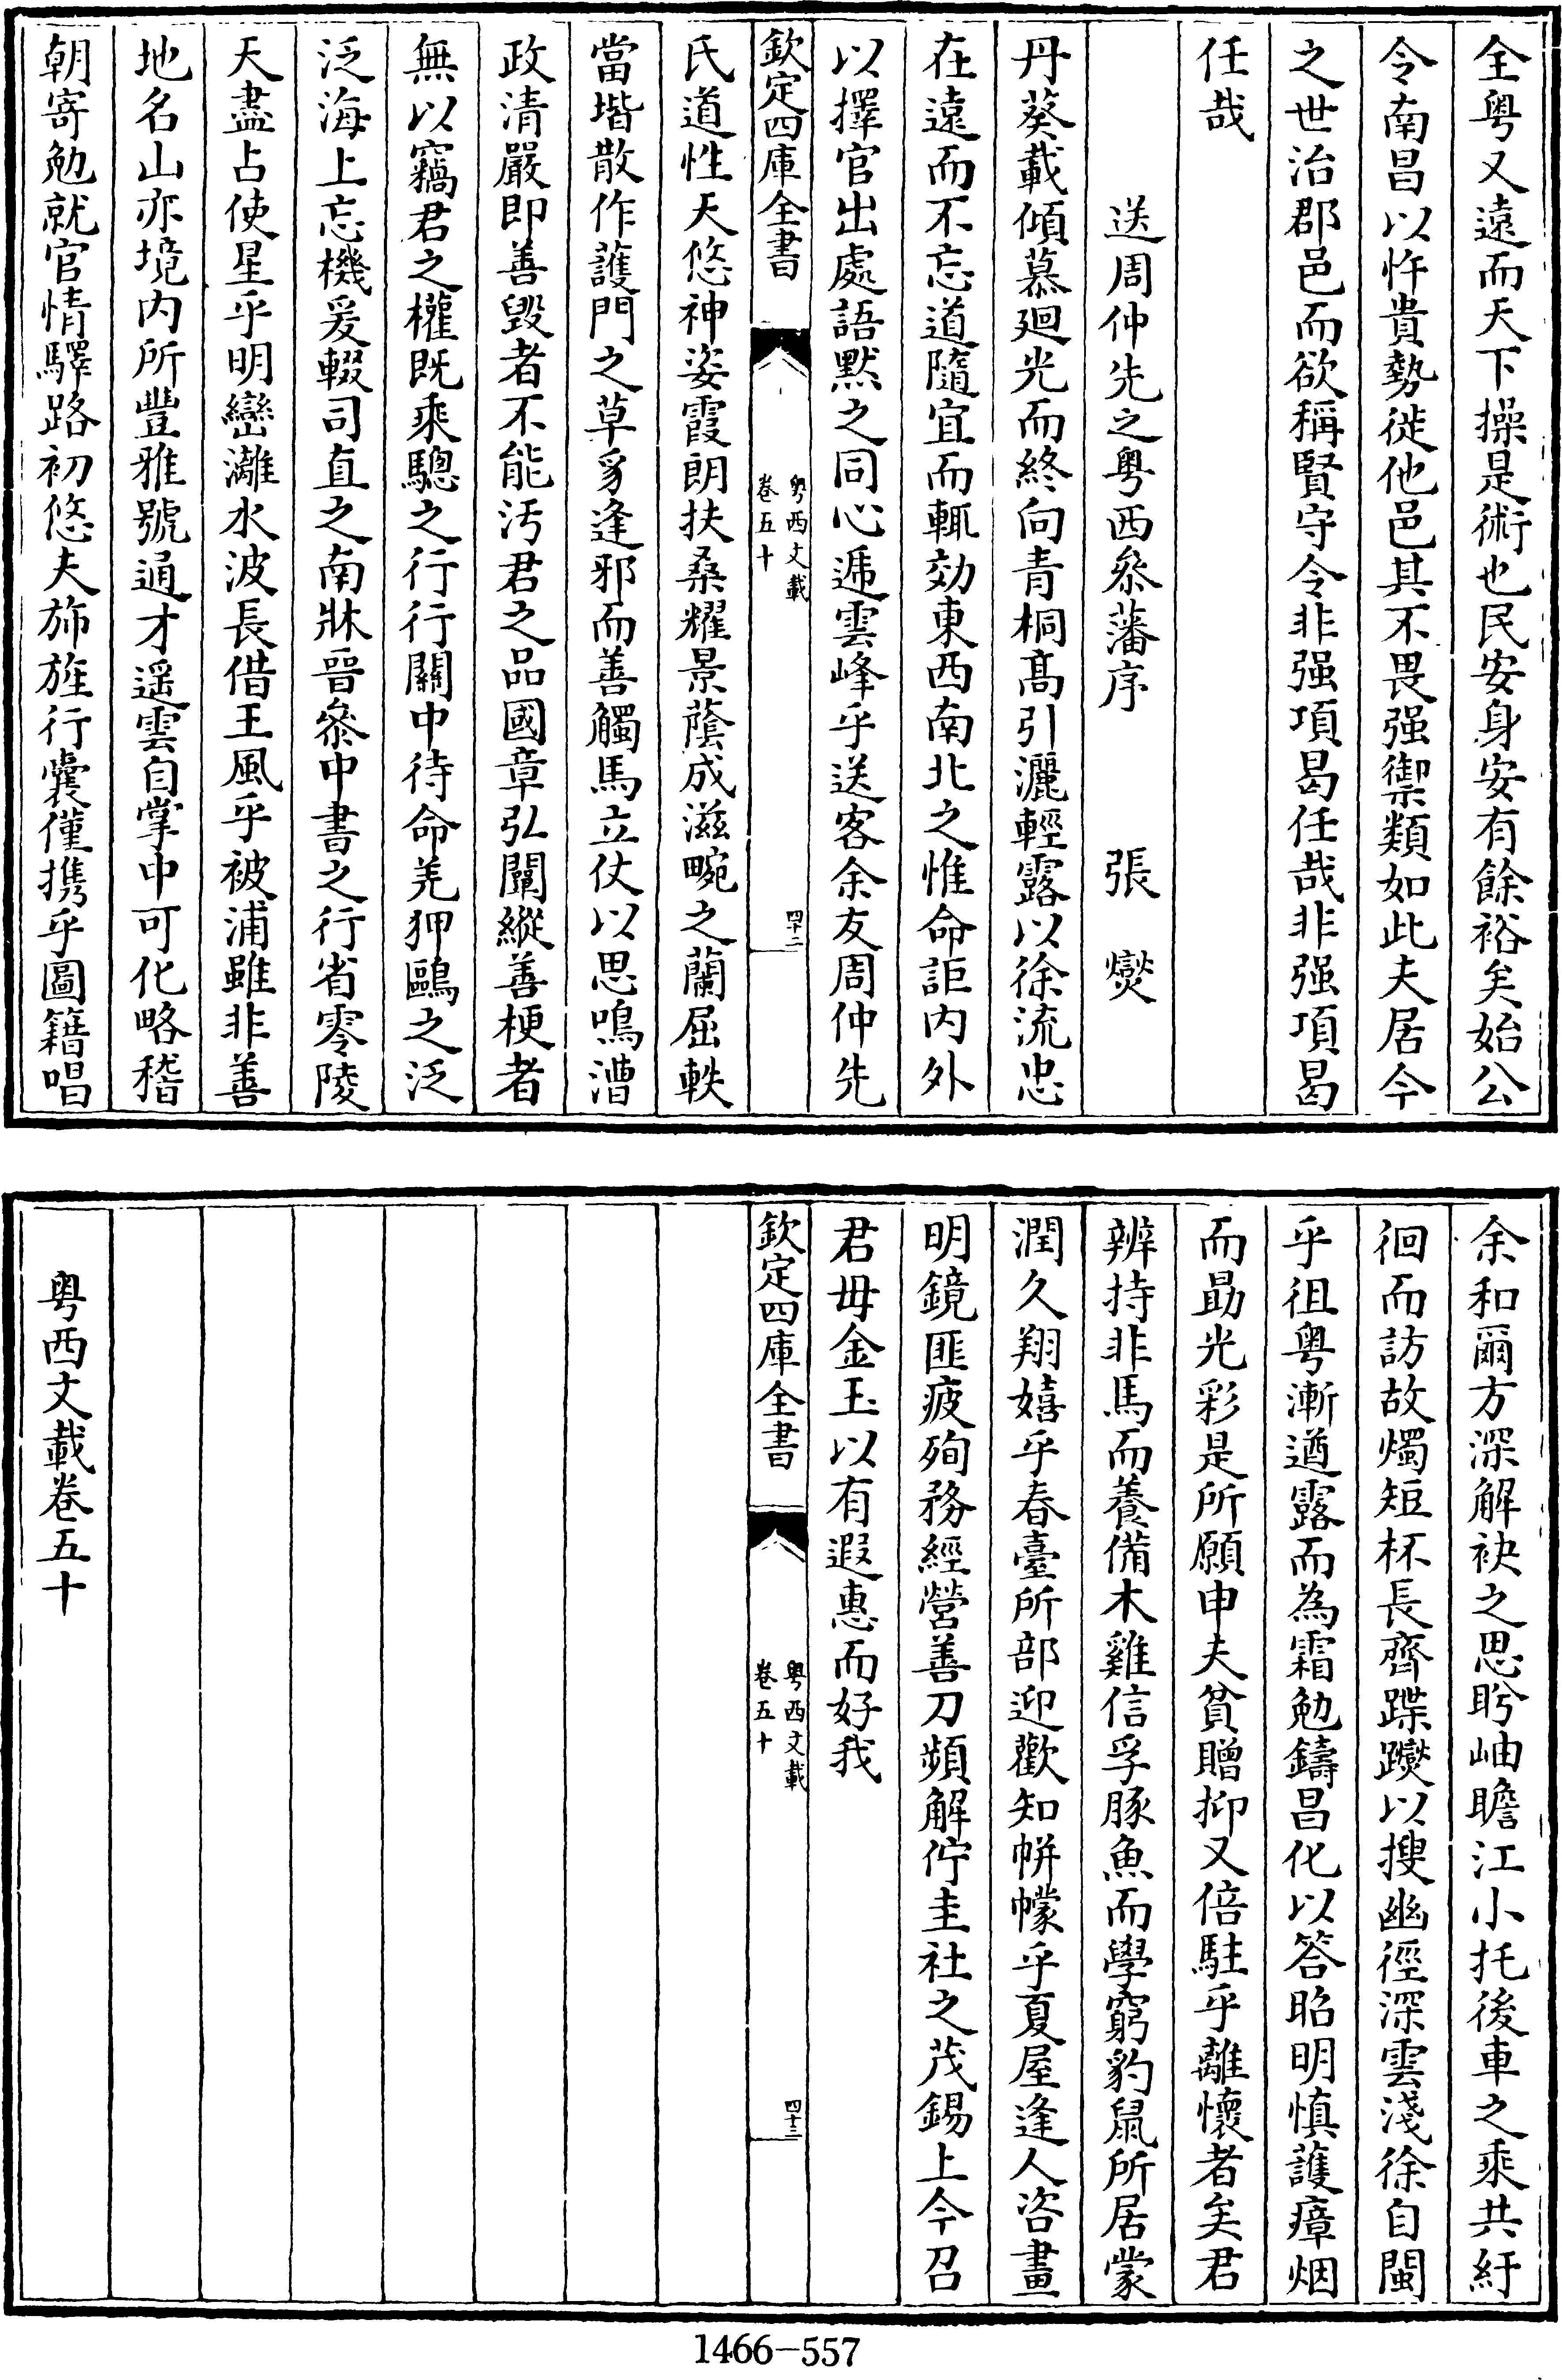 全粤又遠而天下操是術也民安身安有餘裕矣始公
令南昌以忤貴勢徙他邑其不畏强禦類如此夫居今
之世治郡邑而欲稱賢守令非强項曷任哉非强項曷
任哉
送周仲先之粤西叅藩序 張燮
丹葵載傾慕廻光而終向青桐髙引灑輕露以徐流忠
在遠而不忘道隨宜而輒効東西南北之惟命詎内外
以擇官出處語黙之同心遞雲峰乎送客余友周仲先
欽定四庫全書
粤西文載
卷五十
四十二
氏道性天悠神姿霞朗扶桑耀景蔭成滋畹之蘭屈軼
當堦散作護門之草豸逢邪而善觸馬立仗以思鳴漕
政清嚴即善毁者不能汚君之品國章弘闡縱善梗者
無以竊君之權既乘驄之行行關中待命羌狎鷗之泛
泛海上忘機爰輟司直之南牀晉叅中書之行省零陵
天盡占使星乎明巒灕水波長借王風乎被浦雖非善
地名山亦境内所豐雅號通才遥雲自掌中可化略稽
朝寄勉就官情驛路初悠夫斾旌行囊僅攜乎圖籍唱
余和爾方深解袂之思盻岫瞻江小托後車之乘共紆
徊而訪故燭短杯長齊蹀躞以搜幽徑深雲淺徐自閩
乎徂粤漸遒露而為霜勉鑄昌化以答昭明慎護瘴烟
而勗光彩是所願申夫貧贈抑又倍駐乎離懷者矣君
辨持非馬而養備木雞信孚豚魚而學窮豹鼠所居蒙
潤久翔嬉乎春臺所部迎歡知帲幪乎夏屋逢人咨畫
明鏡匪疲殉務經營善刀頻解佇圭社之茂錫上今召
君毋金玉以有遐惠而好我
欽定四庫全書
粤西文載
卷五十
四十三
粤西文載卷五十
1466-557